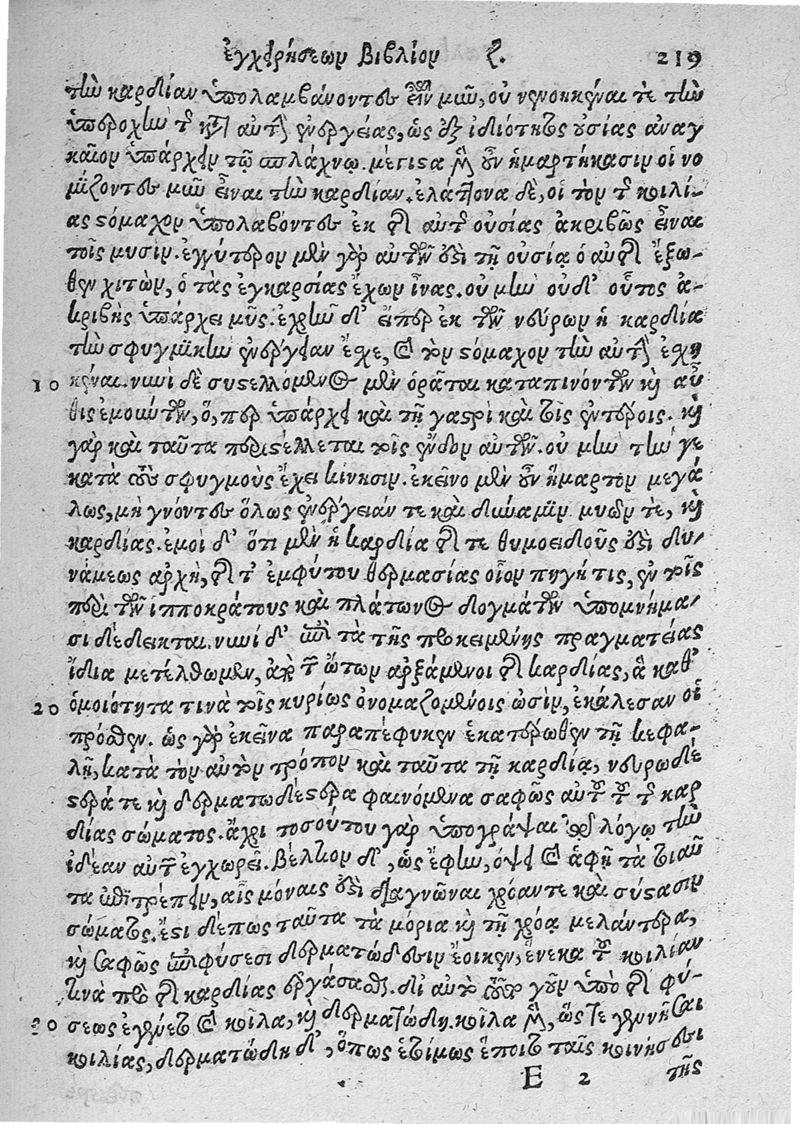 ἐγχειρήσεων βιβλίον ζ. 219
τὴν καρδίαν ὑπολαμβάνοντες εἶναι μῦν, οὐ νενοηκέναι τε τὴν
ὑπεροχὴν τῆς κατ' αὐτὴν ἐνεργείας, ὡς ἐξ ἰδιότητος οὐσίας ἀναγ
καῖον ὑπάρχειν τῷ σπλάχνῳ. μέγιστα μὲν οὖν ἡμαρτήκασιν οἱ νο
μίζοντες μῦν εἶναι τὴν καρδίαν. ἐλάττονα δὲ, οἱ τὸν τῆς κοιλί-
ας στόμαχον ὑπολαβόντες ἐκ τῆς αὐτῆς οὐσίας ἀκριβῶς εἶναι
τοῖς μυσίν. ἐγγύτερον μὲν γὰρ αὐτῶν ἐστι τῇ οὐσίᾳ ὁ αὐτῆς ἔξω-
θεν χιτὼν, ὁ τὰς ἐγκαρσίας ἔχων ἶνας. οὐ μὴν οὐδ' οὗτος ἀ-
κριβὴς ὑπάρχει μῦς. ἐχρῆν δ' εἴπερ ἐκ τῶν νεύρων ἡ καρδία
τὴν σφυγμικὴν ἐνέργειαν ἔσχε, καὶ τὸν στόμαχον τὴν αὐτὴν ἐσχη
10 κέναι. νυνὶ δὲ συστελλόμενος μὲν ὁρᾶται καταπινόντων κỳ αὖ
θις ἐμούντων, ὅ, περ ὑπάρχει καὶ τῇ γαστρὶ καὶ τοῖς ἐντέροις. καὶ
γὰρ καὶ ταῦτα περιστέλλεται τοῖς ἔνδον αὐτῶν. οὐ μὴν τήν γε
κατὰ τοὺς σφυγμοὺς ἔχει κίνησιν. ἐκεῖνο μὲν οὖν ἥμαρτον μεγά
λως, μὴ γνόντες ὅλως ἐνέργειάν τε καὶ δύναμιν μυῶν τε, καὶ
καρδίας. ἐμοὶ δ' ὅτι μὲν ἡ καρδία τῆς τε θυμοειδοῦς ἐστι δυ-
νάμεως ἀρχὴ, τῆς τ' ἐμφύτου θερμασίας οἷον πηγή τις, ἐν τοῖς
περὶ τῶν ἱπποκράτους καὶ πλάτωνος δογμάτων ὑπομνήμα-
σι δέδεικται. νυνί δ' ἐπὶ τὰ τῆς προκειμένης πραγματείας
ἴδια μετέλθωμεν, ἀπὸ τῶν ὤτων ἀρξάμενοι τῆς καρδίας, ἃ καθ'
20 ὁμοιότητα τινὰ τοῖς κυρίως ὀνομαζομένοις ὠσὶν, ἐκάλεσαν οἱ
πρόσθεν. ὡς γὰρ ἐκεῖνα παραπέφυκεν ἑκατέρωθεν τῇ κεφα-
λῇ, κατὰ τὸν αὐτὸν τρόπον καὶ ταῦτα τῇ καρδίᾳ, νευρωδέ
στερά τε καὶ δερματωδέστερα φαινόμενα σαφῶς αὐτοῦ τοῦ τῆς καρ
δίας σώματος. ἄχρι τοσούτου γὰρ ὑπογράψαι τῷ λόγῳ τὴν
ἰδέαν αὐτῶν ἐγχωρεῖ. βέλτιον δ', ὡς ἔφην, ὄψει καὶ ἁφῇ τὰ τοιαῦ
τα ἐπιτρέπειν, αἷς μόναις ἐστὶ διαγνῶναι χρόαν τε καὶ σύστασιν
σώματος. ἔστι δέ πως ταῦτα τὰ μόρια καὶ τῇ χρόᾳ μελάντερα,
καὶ σαφῶς ἐπιφύσεσι δερματώδεσιν ἔοικεν, ἕνεκα τοῦ κοιλίαν
τινὰ πρὸ τῆς καρδίας ἐργάσασθαι. δι' αὐτὸ τοῦτο γοῦν ὑπὸ τῆς φύ-
30 σεως ἐγένετο καὶ κοῖλα, καὶ δερματώδη. κοῖλα μὲν, ὥς τε γενέσθαι
κοιλίας, δερματώδη δ', ὅπως ἑτοίμως ἕποιτο ταῖς κινήσεσι
E 2 τῆς